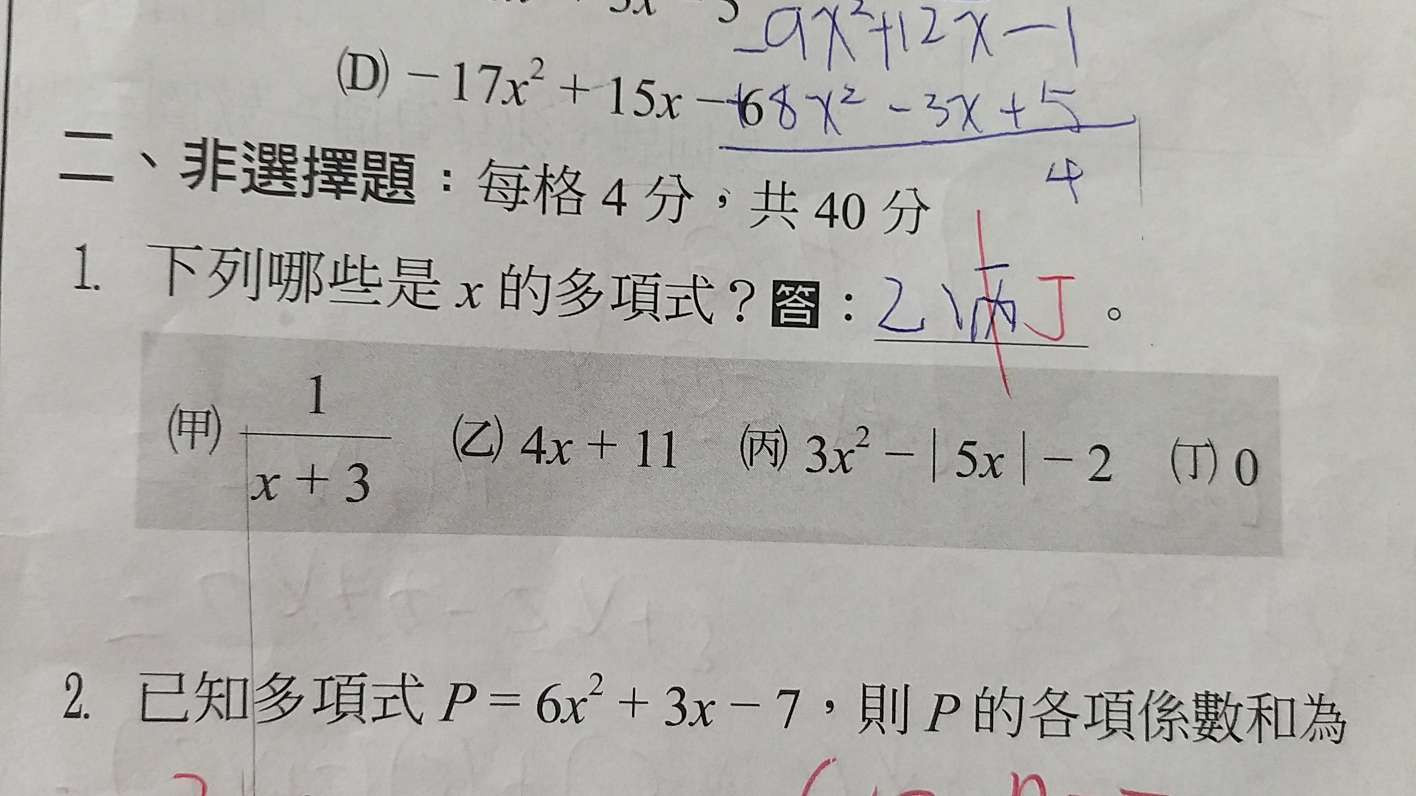 -9x²+12x-1
(D) -17x² + 15x - 6
+8x² -3x + 5
4
二、非選擇題：每格 4 分，共 40 分
1. 下列哪些是 x 的多項式？答：乙、丙 丁。
(甲) 1/(x + 3) (乙) 4x + 11 (丙) 3x² - | 5x | - 2 (丁) 0
2. 已知多項式 P = 6x² + 3x - 7，則 P 的各項係數和為